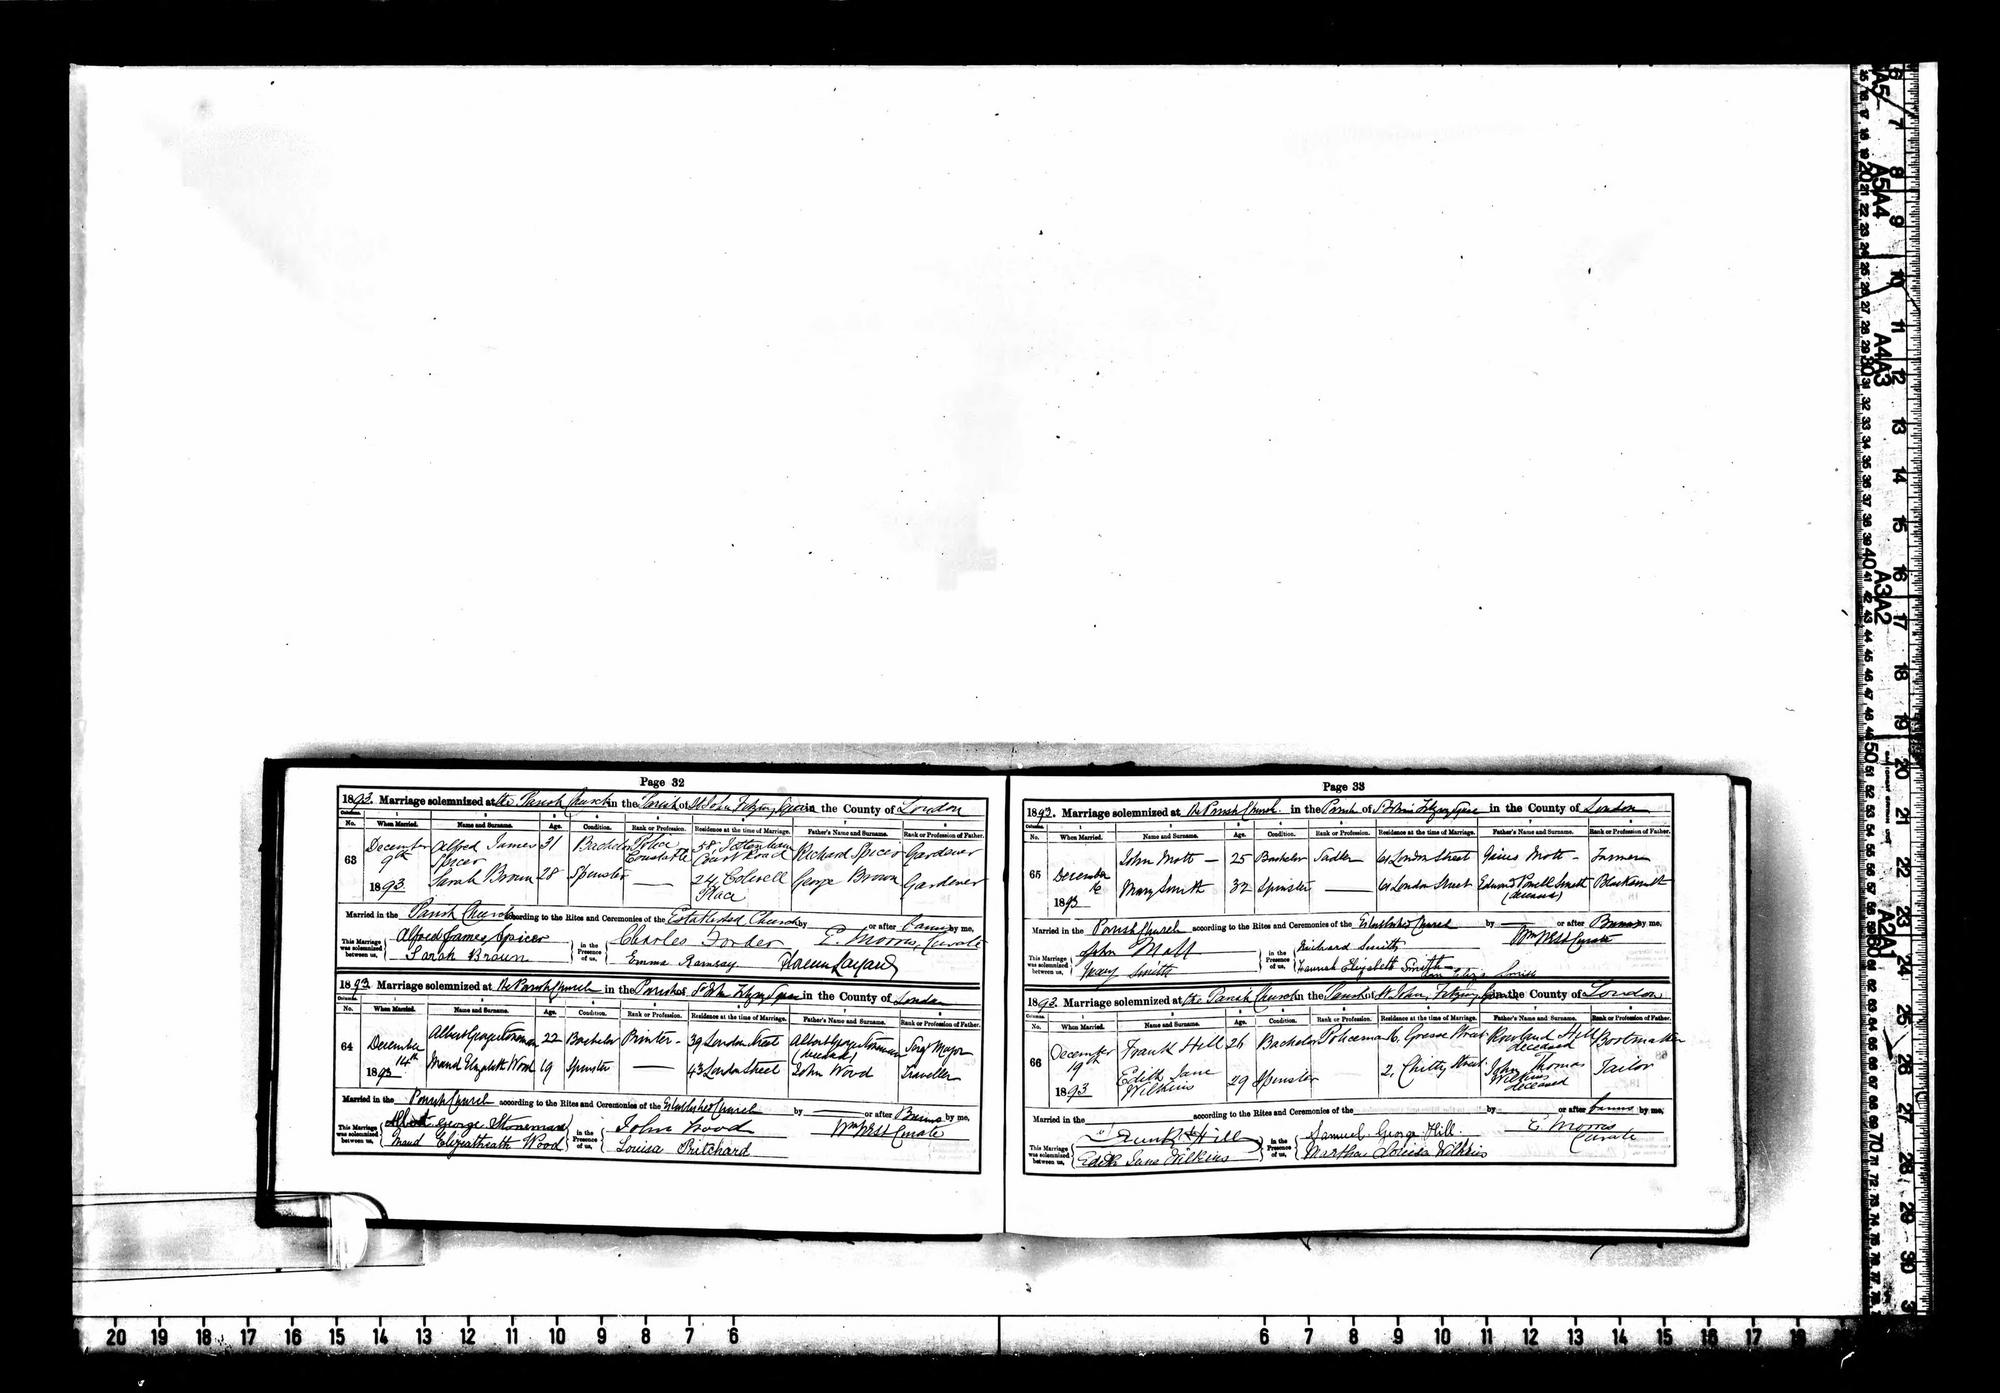 Page 32
1893. Marriage solemnized at the Parish Church in the Parish of St John Fitzroy Square in the County of London
Columns. 1 2 3 4 5 6 7 8
No. When Married. Name and Surname. Age. Condition. Rank or Profession. Residence at the time of Marriage. Father's Name and Surname. Rank or Profession of Father.
63 December 9th 1893. Alfred James Spicer 31 Bachelor Police Constable 58 Tottenham Court Road Richard Spicer Gardener
Sarah Brown 28 Spinster — 24 Colwell Place George Brown Gardener
Married in the Parish Church according to the Rites and Ceremonies of the Established Church by — or after Banns by me,
E. Morris, Curate
This Marriage was solemnized between us, Alfred James Spicer Sarah Brown in the Presence of us, Charles Forder Emma Ramsay
1893. Marriage solemnized at the Parish Church in the Parish of St John Fitzroy Square in the County of London
Columns. 1 2 3 4 5 6 7 8
No. When Married. Name and Surname. Age. Condition. Rank or Profession. Residence at the time of Marriage. Father's Name and Surname. Rank or Profession of Father.
64 December 14th 1893 Albert George Stoneman 22 Bachelor Printer - 39 London Street Albert George Stoneman (deceased) Sergt Major
Maud Elizabeth Wood 19 Spinster — 43 London Street John Wood Traveller
Married in the Parish Church according to the Rites and Ceremonies of the Established Church by — or after Banns by me,
Wm West Curate
This Marriage was solemnized between us, Albert George Stoneman Maud Elizabeath Wood in the Presence of us, John Wood Louisa Pritchard
Page 33
1893. Marriage solemnized at the Parish Church in the Parish of St John Fitzroy Square in the County of London
Columns. 1 2 3 4 5 6 7 8
No. When Married. Name and Surname. Age. Condition. Rank or Profession. Residence at the time of Marriage. Father's Name and Surname. Rank or Profession of Father.
65 December 16 1893 John Mott — 25 Bachelor Sadler 61 London Street Mott - Farmer
Mary Smith 32 Spinster — 61 London Street Edward Powell Smith (deceased) Blacksmith
Married in the Parish Church according to the Rites and Ceremonies of the Established Church by — or after Banns by me,
Wm West Curate
This Marriage was solemnized between us, John Mott Mary Smith in the Presence of us, Richard Smith Hannah Elizabeth Smith
1893. Marriage solemnized at the Parish Church in the Parish of St John, Fitzroy Square in the County of London
Columns. 1 2 3 4 5 6 7 8
No. When Married. Name and Surname. Age. Condition. Rank or Profession. Residence at the time of Marriage. Father's Name and Surname. Rank or Profession of Father.
66 December 19th 1893 Frank Hill 26 Bachelor Policeman 16, Gresse Street Rowland Hill deceased Bootmaker
Edith Jane Wilkins 29 Spinster 2, Chitty Street John Thomas Wilkins deceased Tailor
Married in the according to the Rites and Ceremonies of the by — or after banns by me,
E. Morris Curate
This Marriage was solemnized between us, Frank Hill Edith Jane Wilkins in the Presence of us, Samuel George Hill. Martha Louisa Wilkins
20 19 18 17 16 15 14 13 12 11 10 9 8 7 6 6 7 8 9 10 11 12 13 14 15 16 17 18